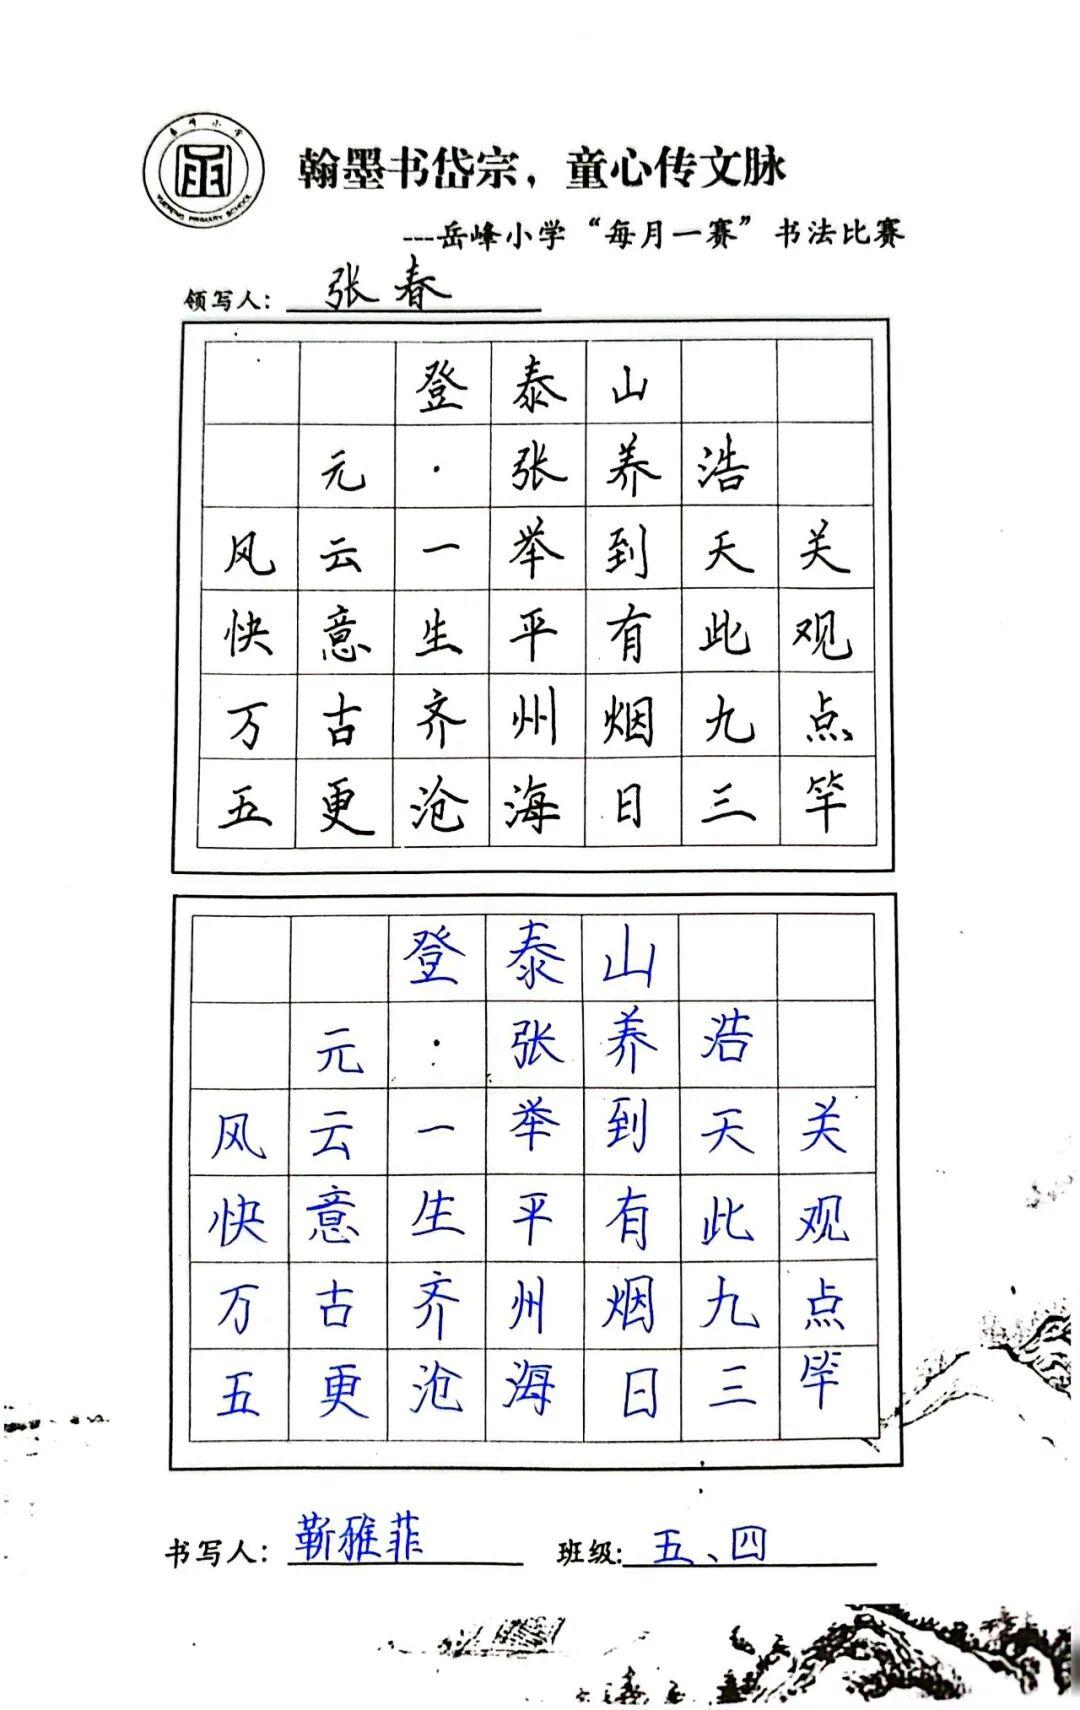 岳峰小学
YUEFENG PRIMARY SCHOOL
翰墨书岱宗，童心传文脉
---岳峰小学“每月一赛”书法比赛
领写人：张春
登泰山
元·张养浩
风云一举到天关
快意生平有此观
万古齐州烟九点
五更沧海日三竿
登泰山
元·张养浩
风云一举到天关
快意生平有此观
万古齐州烟九点
五更沧海日三竿
书写人：靳雅菲 班级：五、四